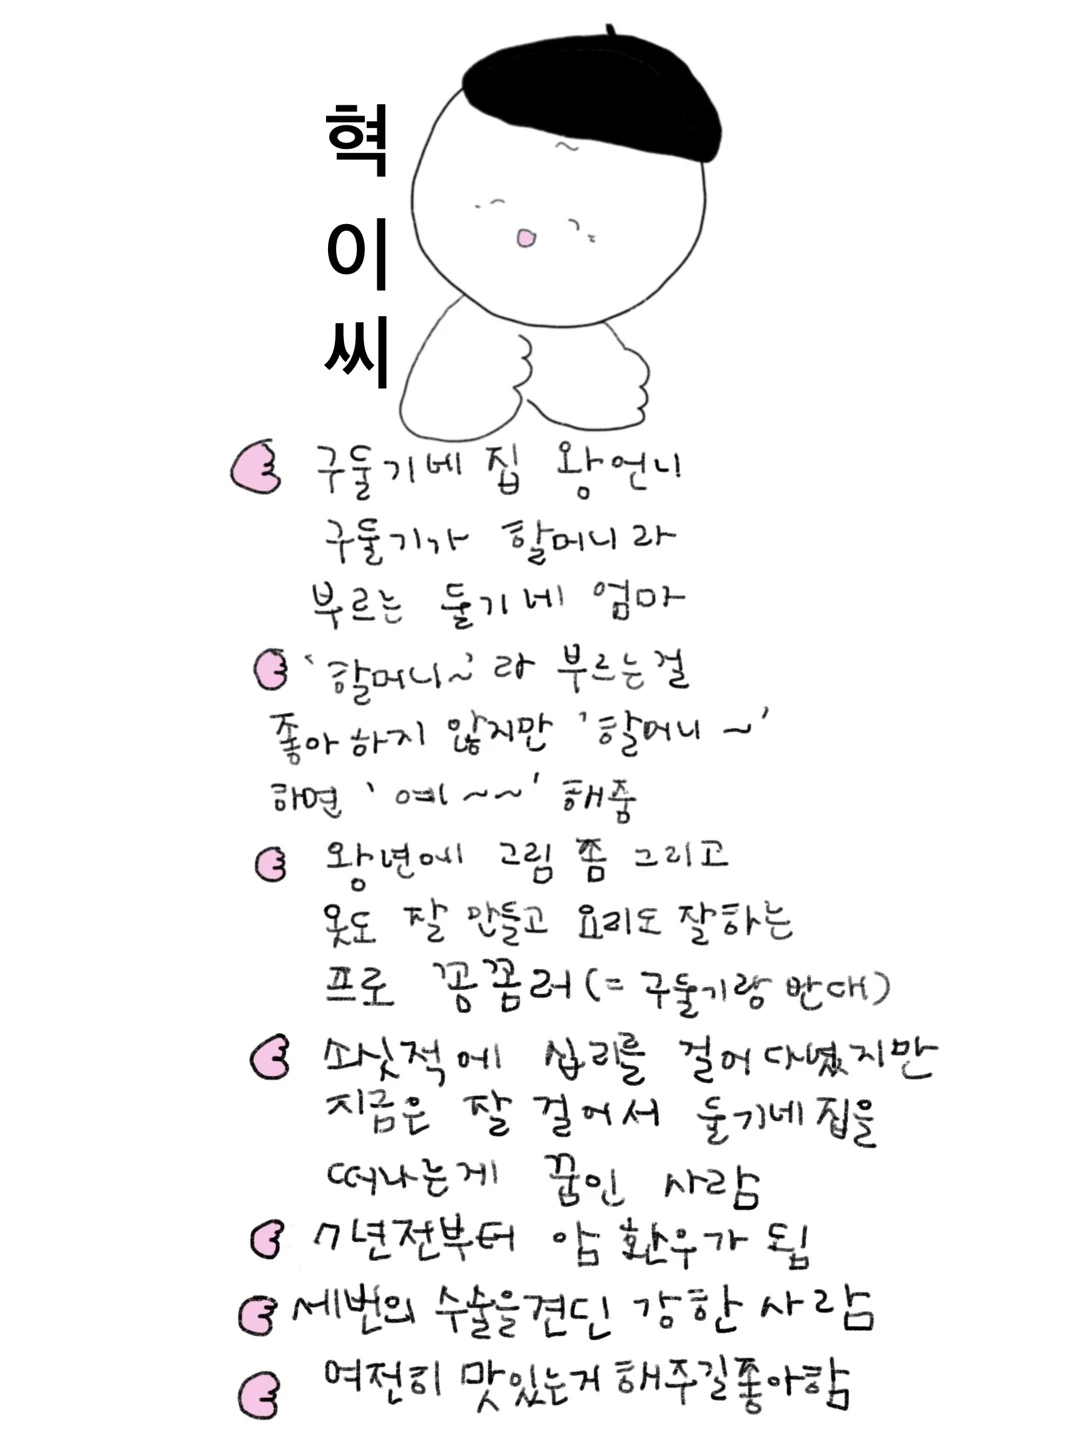 혁이씨
구둘기네 집 왕언니
구둘기가 할머니라
부르는 둘기네 엄마
'할머니~'라 부르는걸
좋아하지 않지만 '할머니~'
하면 '예~~' 해줌
왕년에 그림 쫌 그리고
옷도 잘 만들고 요리도 잘하는
프로 꽁꼼러(= 구둘기랑 반대)
소싯적에 십리를 걸어 다녔지만
지금은 잘 걸어서 둘기네집을
떠나는게 꿈인 사람
7년전부터 암 환우가 됨
세번의 수술을견딘 강한 사람
여전히 맛있는거 해주길좋아함